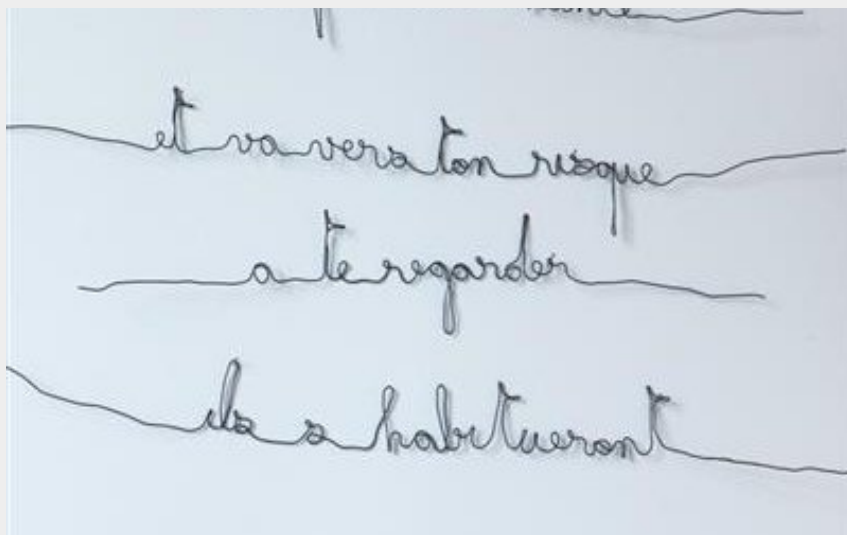 et va vers ton risque
a te regarder
ils s habitueront